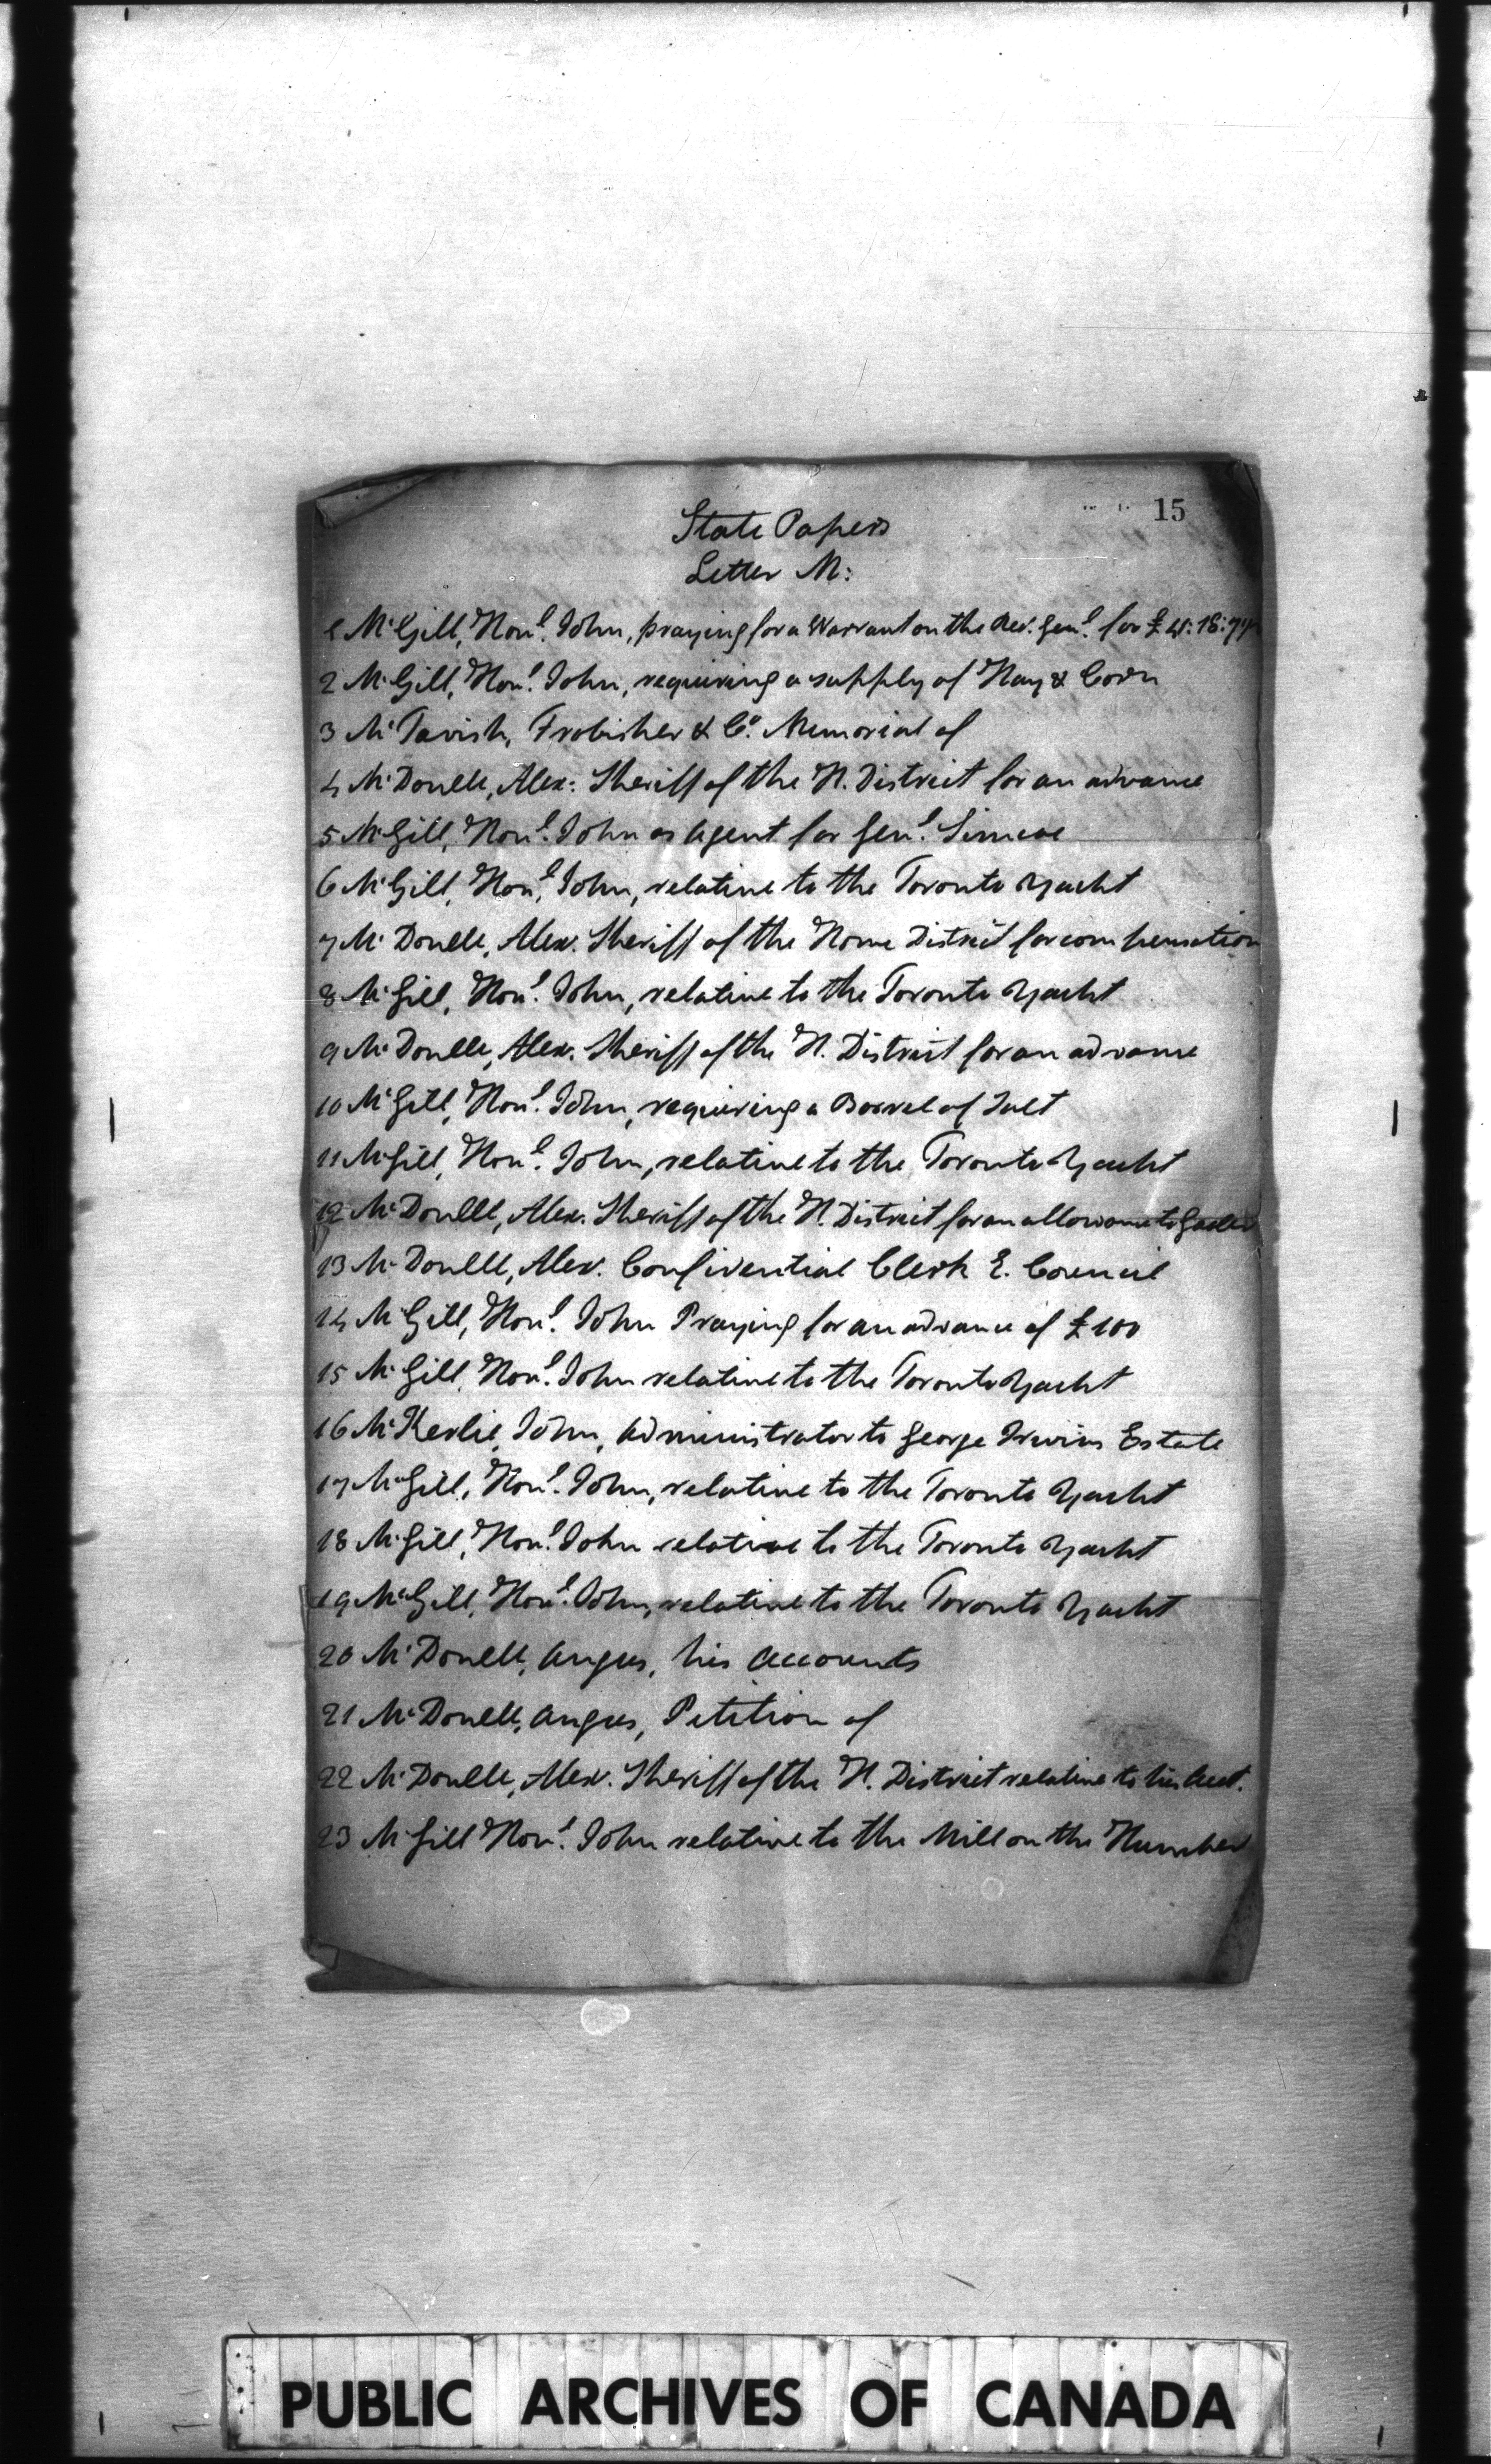 15
State Papers
Letter M:
1 McGill, Honl. John, praying for a Warrant on the Rec. Genl. for £
2 McGill, Honl. John, requiring a supply of Hay & Corn
3 McTavish, Frobisher & Co. Memorial of
4 McDonell, Alex: Sheriff of the H. District for an advance
5 McGill, Honl. John as Agent for Genl. Simcoe
6 McGill, Honl. John, relative to the Toronto Yacht
7 McDonell, Alex. Sheriff of the Home District for compensation
8 McGill, Honl. John, relative to the Toronto Yacht
9 McDonell, Alex. Sheriff of the H. District for an advance
10 McGill, Honl. John, requiring a Barrel of Salt
11 McGill, Honl. John, relative to the Toronto Yacht
12 McDonell, Alex. Sheriff of the H. District for an allowance to Gaoler
13 McDonell, Alex. Confidential Clerk E. Council
14 McGill, Honl. John Praying for an advance of £100
15 McGill, Honl. John relative to the Toronto Yacht
16 McKerlie, John, Administrator to George Irwins Estate
17 McGill, Honl. John, relative to the Toronto Yacht
18 McGill, Honl. John relative to the Toronto Yacht
19 McGill, Honl. John, relative to the Toronto Yacht
20 McDonell, Angus, his Accounts
21 McDonell, Angus, Petition of
22 McDonell, Alex. Sheriff of the H. District relative to his Acct.
23 McGill Honl. John relative to the Mill on the Humber
PUBLIC ARCHIVES OF CANADA